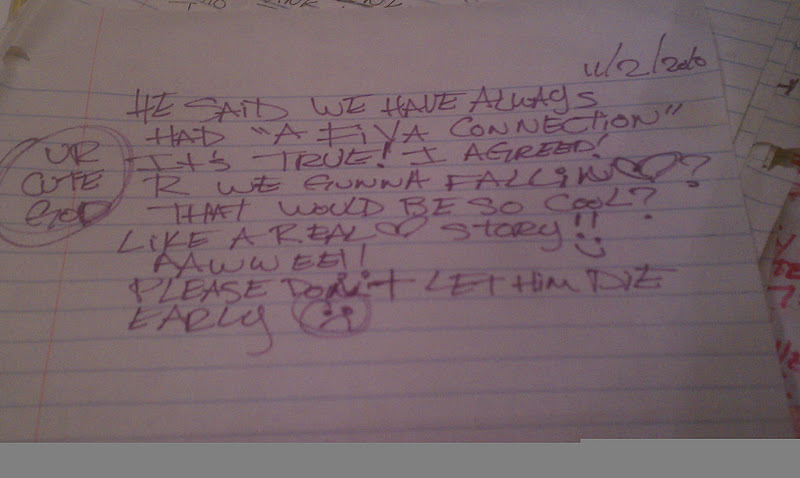 11/2/2010
HE SAID WE HAVE ALWAYS
HAD "A FIYA CONNECTION"
IT'S TRUE! I AGREED!
R WE GUNNA FALL IN ♡?
THAT WOULD BE SO COOL?
LIKE A REAL ♡ STORY!!
AAWWEET!
PLEASE DON'T LET HIM DIE
EARLY
UR
CUTE
GOD